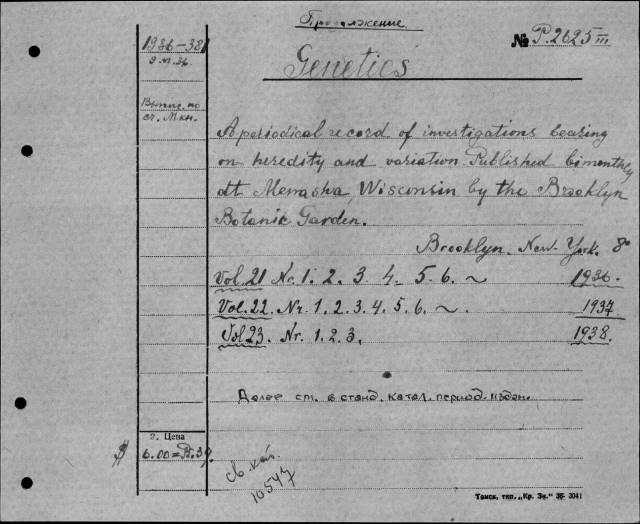 Продолжение
1936-38
№ P.2625 III
Genetics
Выпис. по
сч. М.кн.
A periodical record of investigations bearing
on heredity and variation. Published bimonthly
att Menasha, Wisconsin by the Brooklyn
Botanic Garden.
Brooklyn. New York. 8°
Vol. 21 Nr. 1. 2. 3. 4. 5. 6. ~ 1936.
Vol. 22. Nr. 1. 2. 3. 4. 5. 6. ~. 1937
Vol 23. Nr. 1. 2. 3. 1938.
Далее см. в станд. катал. период. издан.
2. Цена
$ 6.00=
св. кат.
10547
Томск, тип. „Кр. Зн." 3041